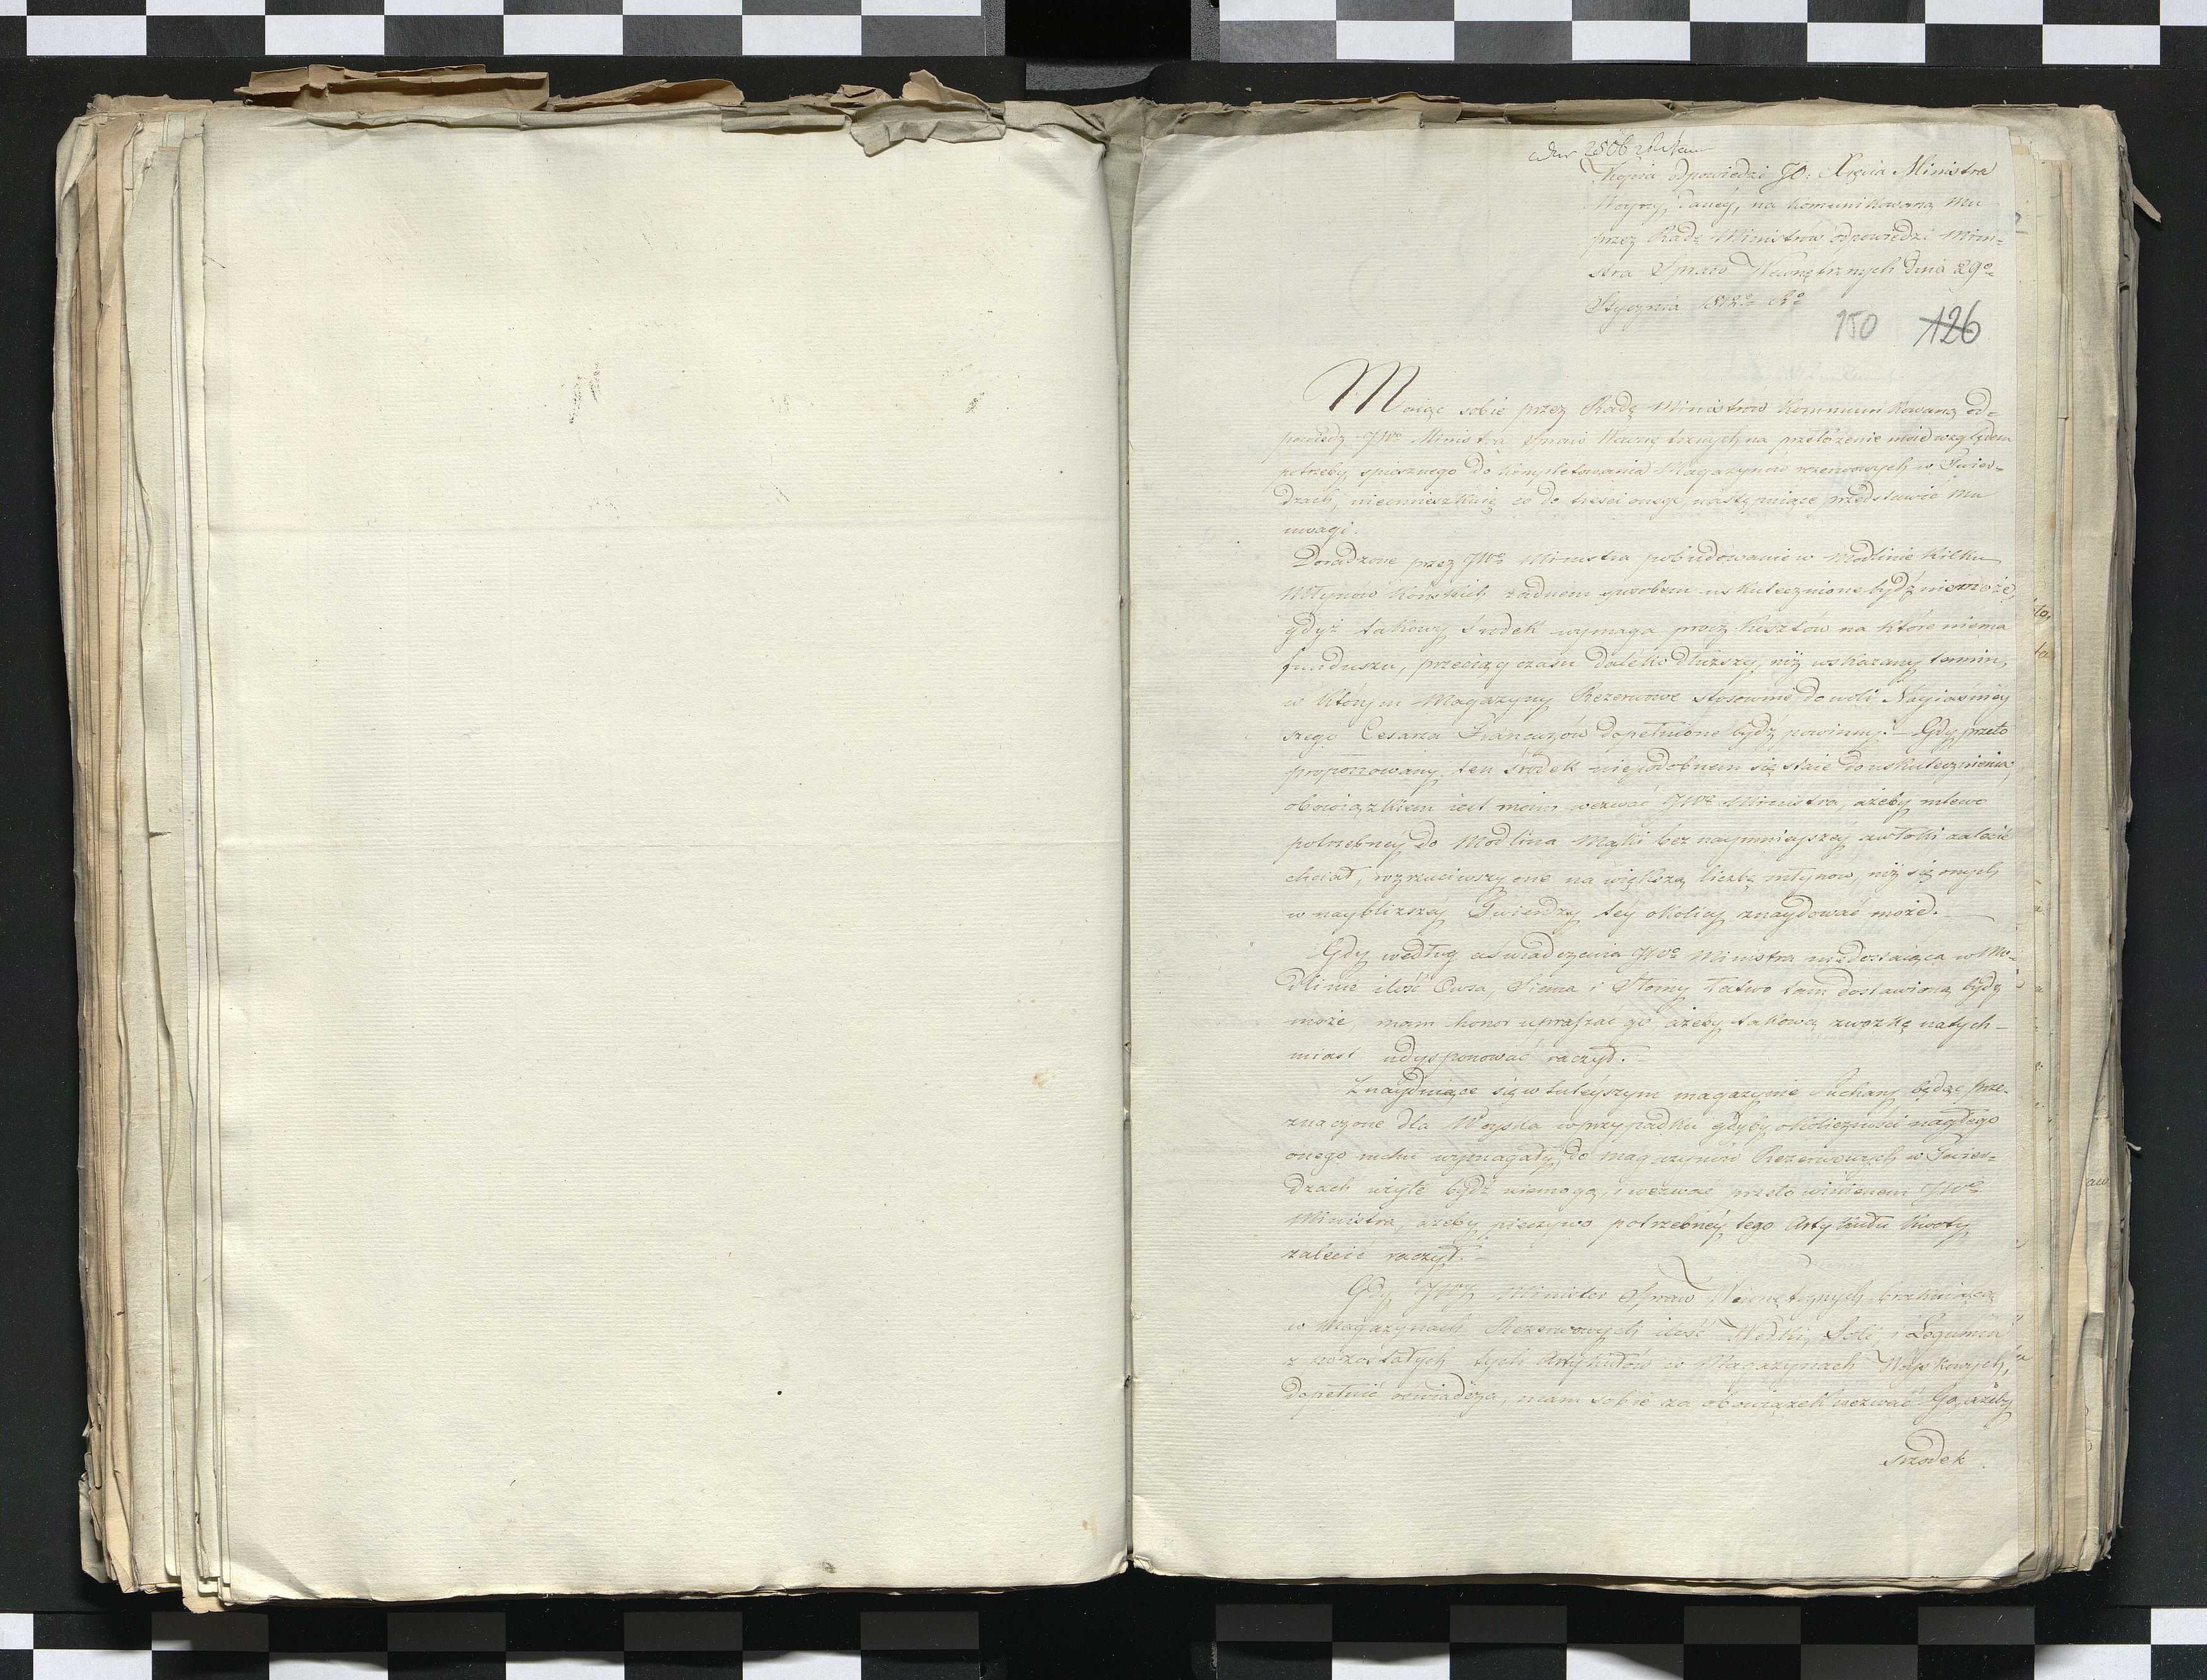 Kopia odpowiedzi JO: Xięcia Ministra
Woyny, daney, na komunikowaną mu
przez Radę Ministrów odpowiedzi Mini-
stra Spraw Wewnętrznych dnia 29o
Stycznia 1812o Ro
150 126
Maiąc sobie przez Radę Ministrów kommunikowaną od-
powiedz JWo Ministra Spraw Wewnętrznych, na przełożenie moie względem
potrzeby spiesznego do kompletowania Magazynów rezerwowych w Twier-
dzach, nieomieszkuię co do treści onego następuiące przedstawić mu
uwagi.
Doradzone przez JWo Ministra pobudowanie w Modlinie kilku
Młynów konskich żadnem sposobem uskutecznione bydź niemoże,
gdyż takowy środek wymaga prócz kosztów na które niema
funduszu, przeciąg czasu daleko dłuższy, niż wskazany termin,
w którym Magazyny Rezerwowe stosownie do woli Nayiaśniey
szego Cesarza Francuzów dopełnione bydź powinny. – Gdy przeto
proponowany ten środek niepodobnem się staie do uskutecznienia,
obowiązkiem iest moim wezwać JWo Ministra, ażeby mlewo
potrzebney do Modlina Mąki bez naymnieyszey zwłoki zalecić
chciał, rozrzuciwszy one na większą liczbę młynow, niż się onych
w naybliższey Twierdzy tey okolicy znaydować może. –
Gdy według oświadczenia JWo Ministra niedostaiąca w Mo-
dlinie ilość Owsa, Siana i Słomy łatwo tam dostawioną bydź
może, mam honor upraszać go ażeby takową zwozkę natych-
miast udysponować raczył. –
Znayduiące się w tuteyszym magazynie Suchary będąc prze-
znaczone dla Woyska w przypadku gdyby okoliczności nagłego
onego ruchu wymagały, do magazynów Rezerwowych w Twier-
dzach użyte bydź niemogą, wezwać przeto winienem JWo
Ministra, ażeby pieczywo potrzebney tego Artykułu kwoty
zalecić raczył. –
Gdy JWy Minister Spraw Wewnętrznych brakuiącą
w Magazynach Rezerwowych ilość Wódki, Soli, i Legumin
z pozostałych tych Artykułów w Magazynach Woyskowych,
dopełnić oswiadcza, mam sobie za obowiązek wezwać Go, ażeby
srzodek